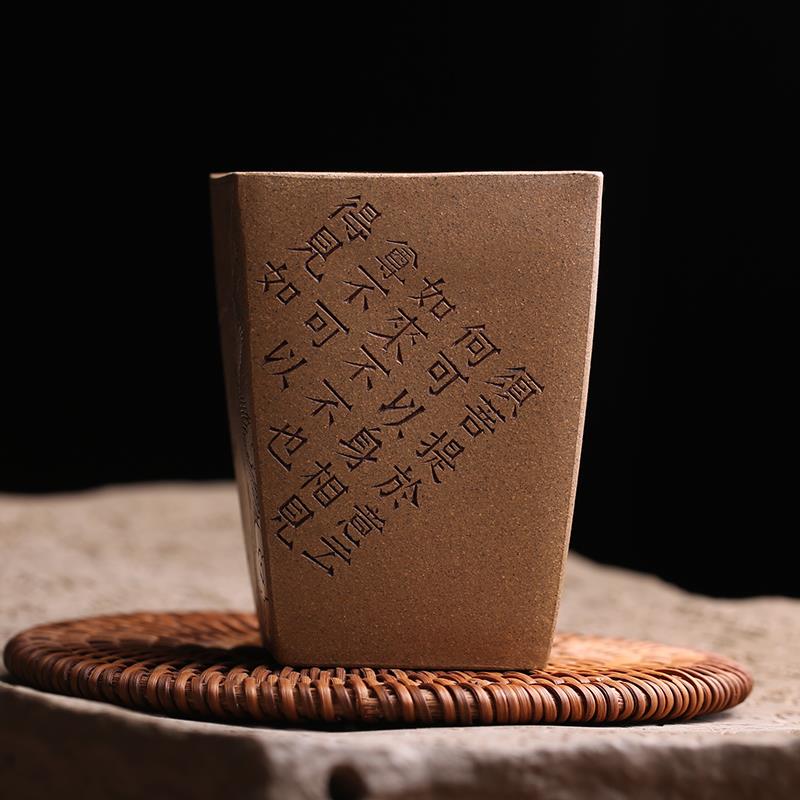 須菩提於意云
何可以身相見
如來不不也
尊不可以
得見如